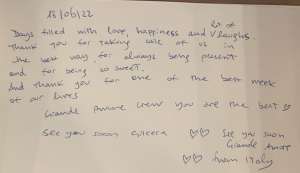 18/06/22
lot of
Days filled with love, happiness and V laughs.
Thank you for taking care of us in
the best way, for always being present
and for being so sweet.
And thank you for one of the best week
of our lives
Grande Amore crew you are the best ♡
See you soon ♡♡ See you soon
Grande Amore
♡♡ from Italy